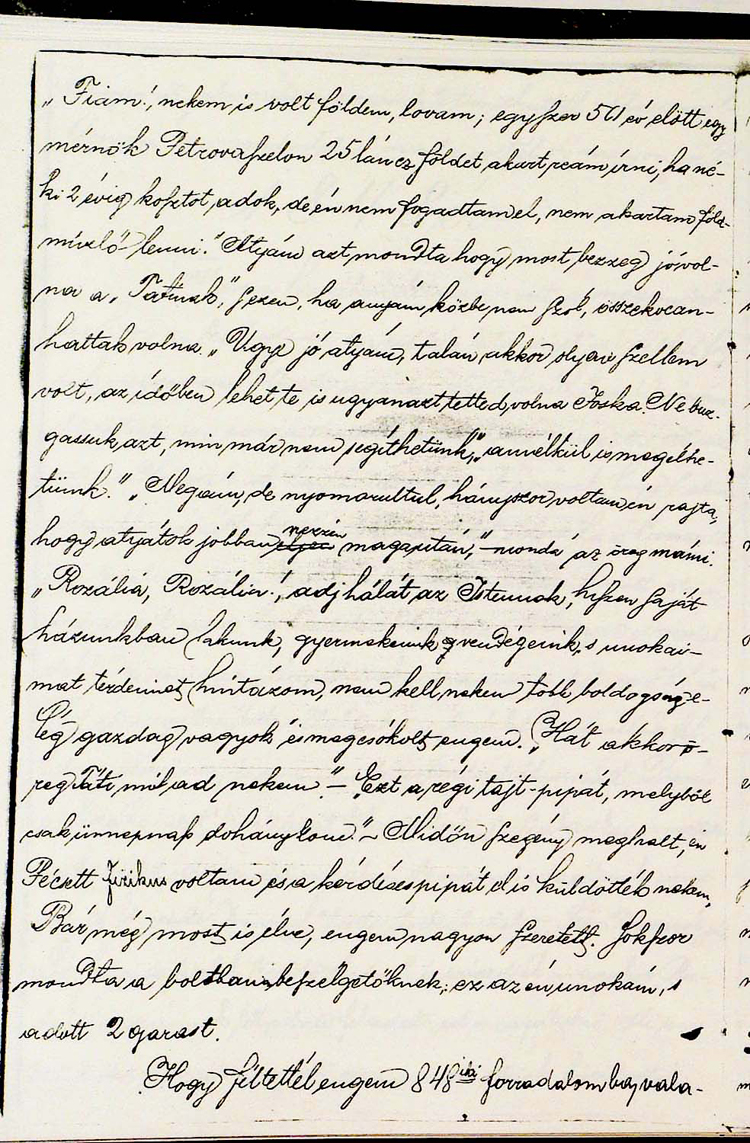 „Fiam!, nekem is volt földem, lovam; egyszer 50 év előtt egy
mérnök Petrovaszelon 25 láncz földet akart reám írni, ha né-
ki 2 évig kosztot adok, de én nem fogadtam el, nem akartam föld-
mívelő lenni." Atyám azt mondta hogy most bezzeg jó vol-
na a „Tátinak," s ezen, ha anyám közbe nem szól, összekocan-
hattak volna. „Úgy jó atyám, talán akkor olyan szellem
volt, az időben lehet te is ugyanazt tetted volna Jóska. Ne buz-
gassuk azt, min már nem segíthetünk," „annélkül is megélhe-
tünk." „Megám, de nyomorultul, hányszor voltam én rajta,
hogy atyátok jobban nézzen magapitán," – monda az öreg mámi.
„Rozália, Rozália!, adj hálát az Istennek, hiszen saját
házunkban lakunk, gyermekeink vendégeink, s unokái-
mat térdeimet hintázom, nem kell nekem több boldogság, e-
lég gazdag vagyok és megcsókolt engem. „Hát akkor ö-
reg Táti mit ad nekem" – „Ezt a régi tajt-pipát, melyből
csak ünnepnap dohányzom." – Midőn szegény meghalt, én
Pécsett fizikus voltam és a kérdéses pipát el is küldötték nekem,
Bár még most is élne, engem nagyon szeretett. Sokszor
mondta a boltban beszélgetőknek; ez az én unokám, s
adott 2 garast.
Hogy féltettél engem 848iki forradalomba, vala-